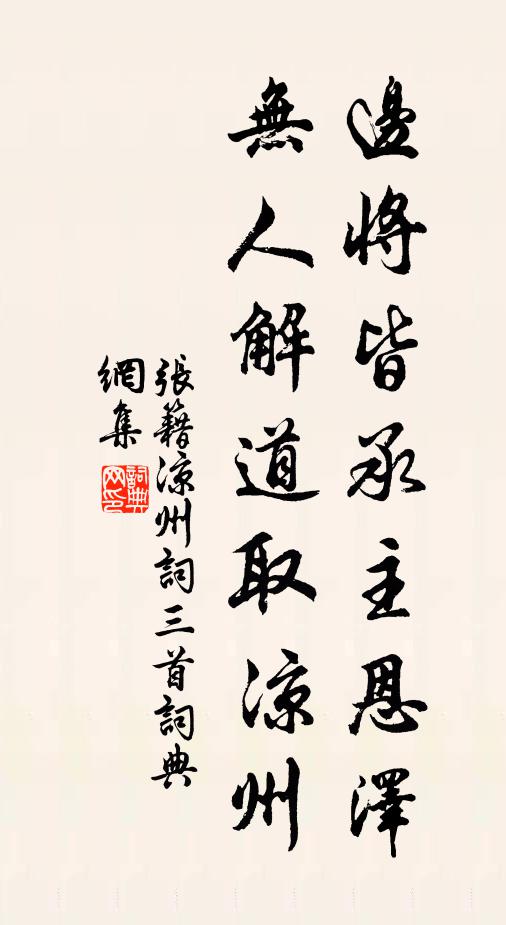 邊將皆承主恩澤
無人解道取涼州
張籍涼州詞三首詞典
網集
詞典
网印